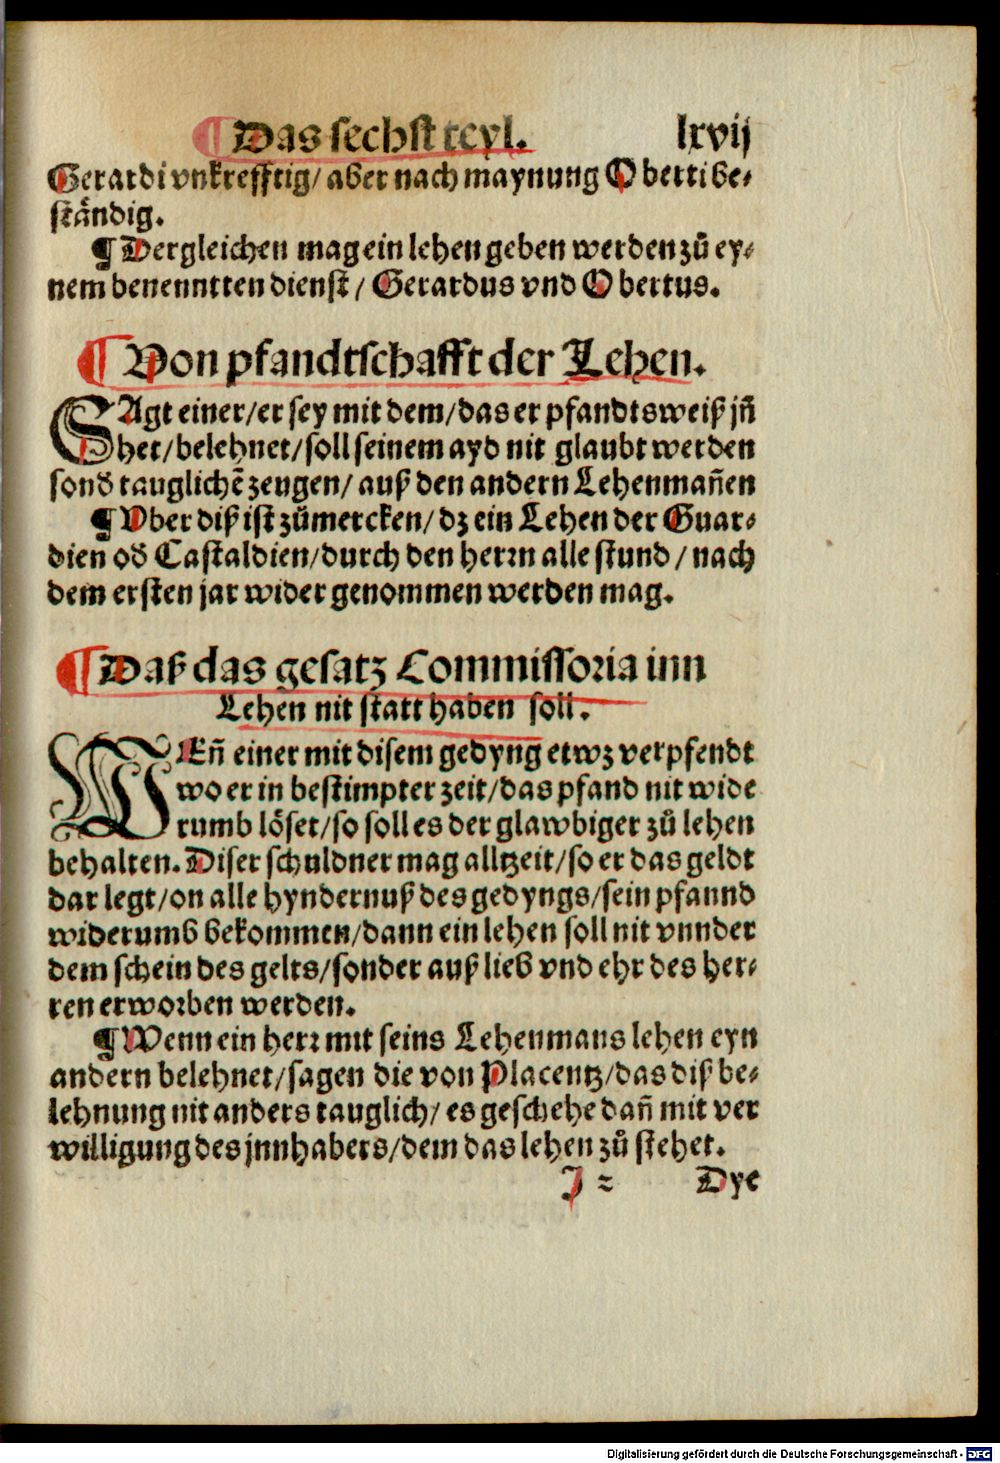 ¶ Das sechst teyl. lxvij
Gerardi vnkrefftig/ aber nach maynung Oberti be⸗
ständig.
¶ Dergleichen mag ein lehen geben werden zů ey⸗
nem benenntten dienst/ Gerardus vnd Obertus.
¶ Von pfandtschafft der Lehen.
SAgt einer/ er sey mit dem/ das er pfandtsweiß jn̄
het/ belehnet/ soll seinem ayd nit glaubt werden
sond tauglichē zeugen/ auß den andern Lehenman̄en
¶ Vber diß ist zůmercken/ dz ein Lehen der Guar⸗
dien od Castaldien/ durch den herrn alle stund/ nach
dem ersten jar wider genommen werden mag.
¶ Daß das gesatz Commissoria inn
Lehen nit statt haben soll.
WEn̄ einer mit disem gedyng etwz verpfendt
wo er in bestimpter zeit/ das pfand nit wide
rumb löset/ so soll es der glawbiger zů lehen
behalten. Diser schuldner mag alltzeit/ so er das geldt
dar legt/ on alle hyndernuß des gedyngs/ sein pfannd
widerumb bekommen/ dann ein lehen soll nit vnnder
dem schein des gelts/ sonder auß lieb vnd ehr des her⸗
ren erworben werden.
¶ Wenn ein herr mit seins Lehenmans lehen eyn
andern belehnet/ sagen die von Placentz/ das diß be⸗
lehnung nit anders tauglich/ es geschehe dan̄ mit ver
willigung des jnnhabers/ dem das lehen zů stehet.
J 2 Dye
Digitalisierung gefördert durch die Deutsche Forschungsgemeinschaft - DFG